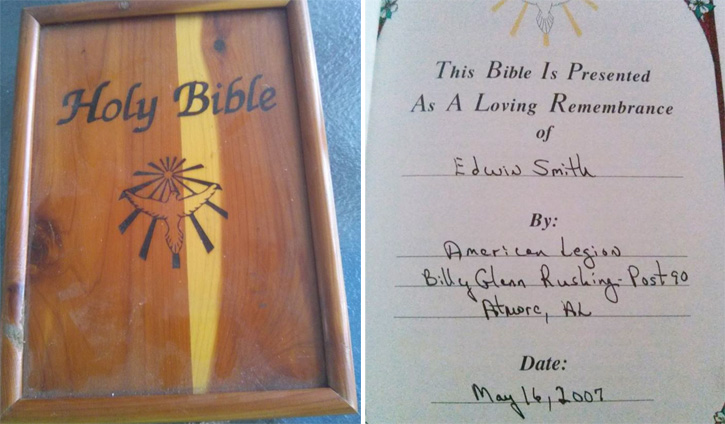 Holy Bible
This Bible Is Presented
As A Loving Remembrance
of
Edwin Smith
By:
American Legion
Billy Glenn Rushing Post 90
Atmore, AL
Date:
May 16, 2007